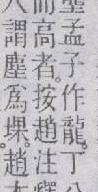 聖孟子作龍丁公
而高者。按趙注釋
人謂塵爲堁。趙